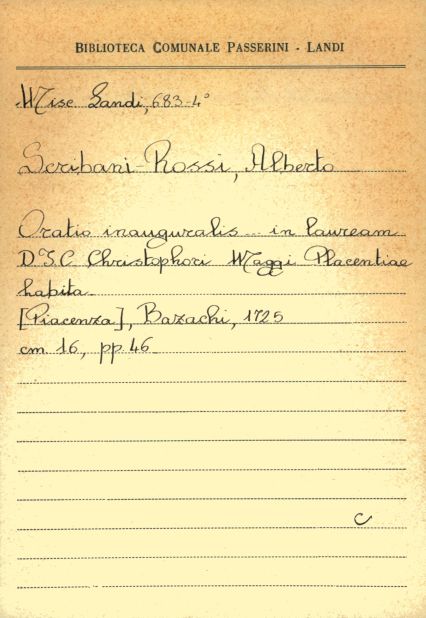 BIBLIOTECA COMUNALE PASSERINI - LANDI
Misc. Landi, 683-4°
Scribani-Rossi, Alberto
Oratio inauguralis ... in lauream
D.I.C. Christophori Maggi Placentiae
habita.
[Piacenza], Bazachi, 1725
cm. 16, pp. 46.
C